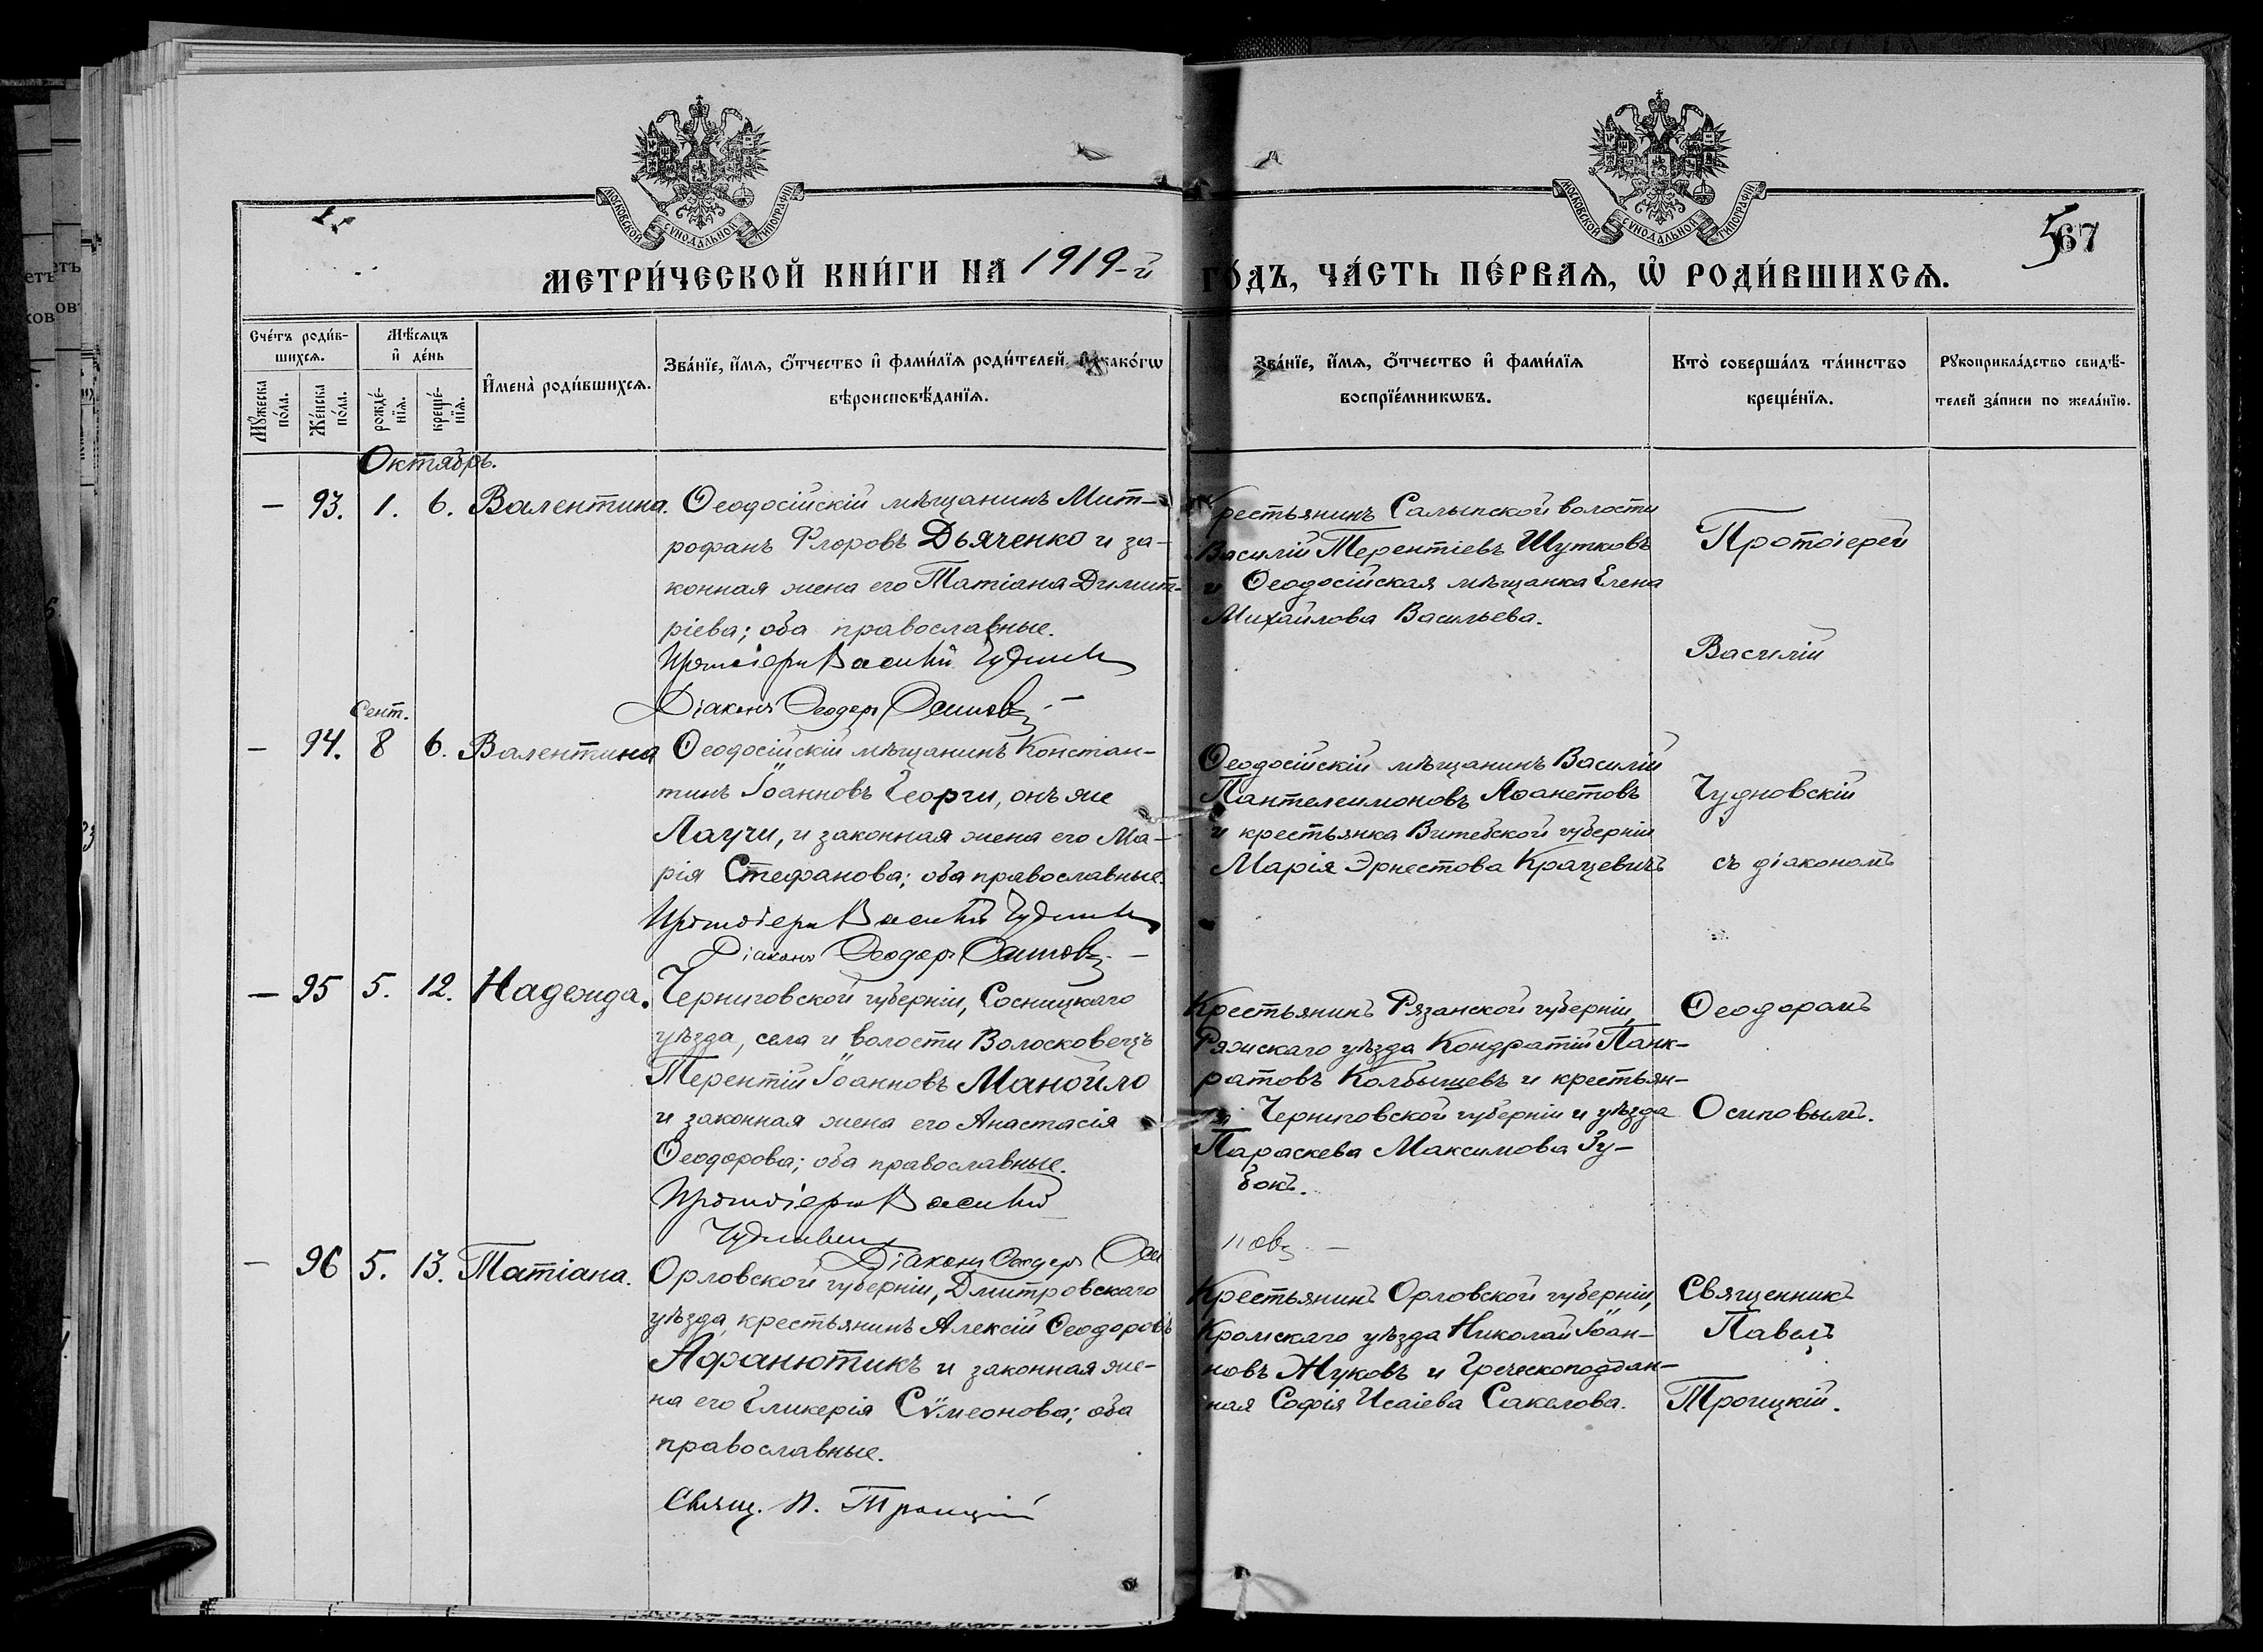 МОСКОВСКОЙ СѴНОДАЛЬНОЙ ТИПОГРАФІИ
МОСКОВСКОЙ СѴНОДАЛЬНОЙ ТИПОГРАФІИ
567
МЕТРИ́ЧЕСКОЙ КНИ́ГИ НА 1919-й ГО́ДЪ, ЧА́СТЬ ПЕ́РВАѦ, Ѽ РОДИ́ВШИХСѦ.
Сче́тъ роди́в-
шихсѧ.
Мꙋ́жеска
по́ла.
Же́нска
по́ла.
Мѣ́сѧцъ
и҆ де́нь
рожде́-
нїѧ.
креще́-
нїѧ.
И҆мена̀ роди́вшихсѧ.
Зва́нїе, и҆́мѧ, ѻ҆́тчество и҆ фами́лїѧ роди́телей, и҆ како́гѡ
вѣроисповѣ́данїѧ.
Зва́нїе, и҆́мѧ, ѻ҆́тчество и҆ фами́лїѧ
воспрїе́мникѡвъ.
Кто̀ соверша́лъ та́инство
креще́нїѧ.
Рꙋкоприкла́дство свидѣ́-
телей за́писи по жела́нїю.
Октябрь.
— 93. 1. 6. Валентина.
Ѳеодосійскій мѣщанинъ Мит-
рофанъ Флоровъ Дьяченко и за-
конная жена его Татіана Димит-
ріева; оба православные.
Протоіерей Василій Чудновскій
Діаконъ Ѳеодоръ Осиповъ. —
Крестьянинъ Салынской волости
Василій Терентіевъ Шутковъ
и Ѳеодосійская мѣщанка Елена
Михайлова Васильева.
Протоіерей
Василій
Сент.
— 94. 8 6. Валентина
Ѳеодосійскій мѣщанинъ Констан-
тинъ Іоанновъ Георги, онъ же
Лаучи, и законная жена его Ма-
рія Стефанова; оба православные.
Протоіерей Василій Чудновскій
Діаконъ Ѳеодоръ Осиповъ. —
Ѳеодосійскій мѣщанинъ Василій
Пантелеимоновъ Аѳанетовъ
и крестьянка Витебской губерніи
Марія Эрнестова Крацевичъ
Чудновскій
съ діакономъ
— 95 5. 12. Надежда.
Черниговской губерніи, Сосницкаго
уѣзда, села и волости Волосковецъ
Терентій Іоанновъ Манойло
и законная жена его Анастасія
Ѳеодорова; оба православные.
Протоіерей Василій
Чудновскій
Діаконъ Ѳеодоръ Оси
повъ. —
Крестьянинъ Рязанской губерніи,
Ряжскаго уѣзда Кондратій Панк-
ратовъ Колбышевъ и крестьян-
Черниговской губерніи и уѣзда
Параскева Максимова Зу-
бокъ.
Ѳеодоромъ
Осиповымъ.
— 96 5. 13. Татіана.
Орловской губерніи, Дмитровскаго
уѣзда, крестьянинъ Алексій Ѳеодоровъ
Афанютикъ и законная же-
на его Гликерія Сѵмеонова; оба
православные.
Свящ. П. Троицкій
Крестьянинъ Орловской губерніи,
Кромскаго уѣзда Николай Іоан-
новъ Жуковъ и Греческоподдан-
ная Софія Исаіева Сакелова.
Священникъ
Павелъ
Троицкій.